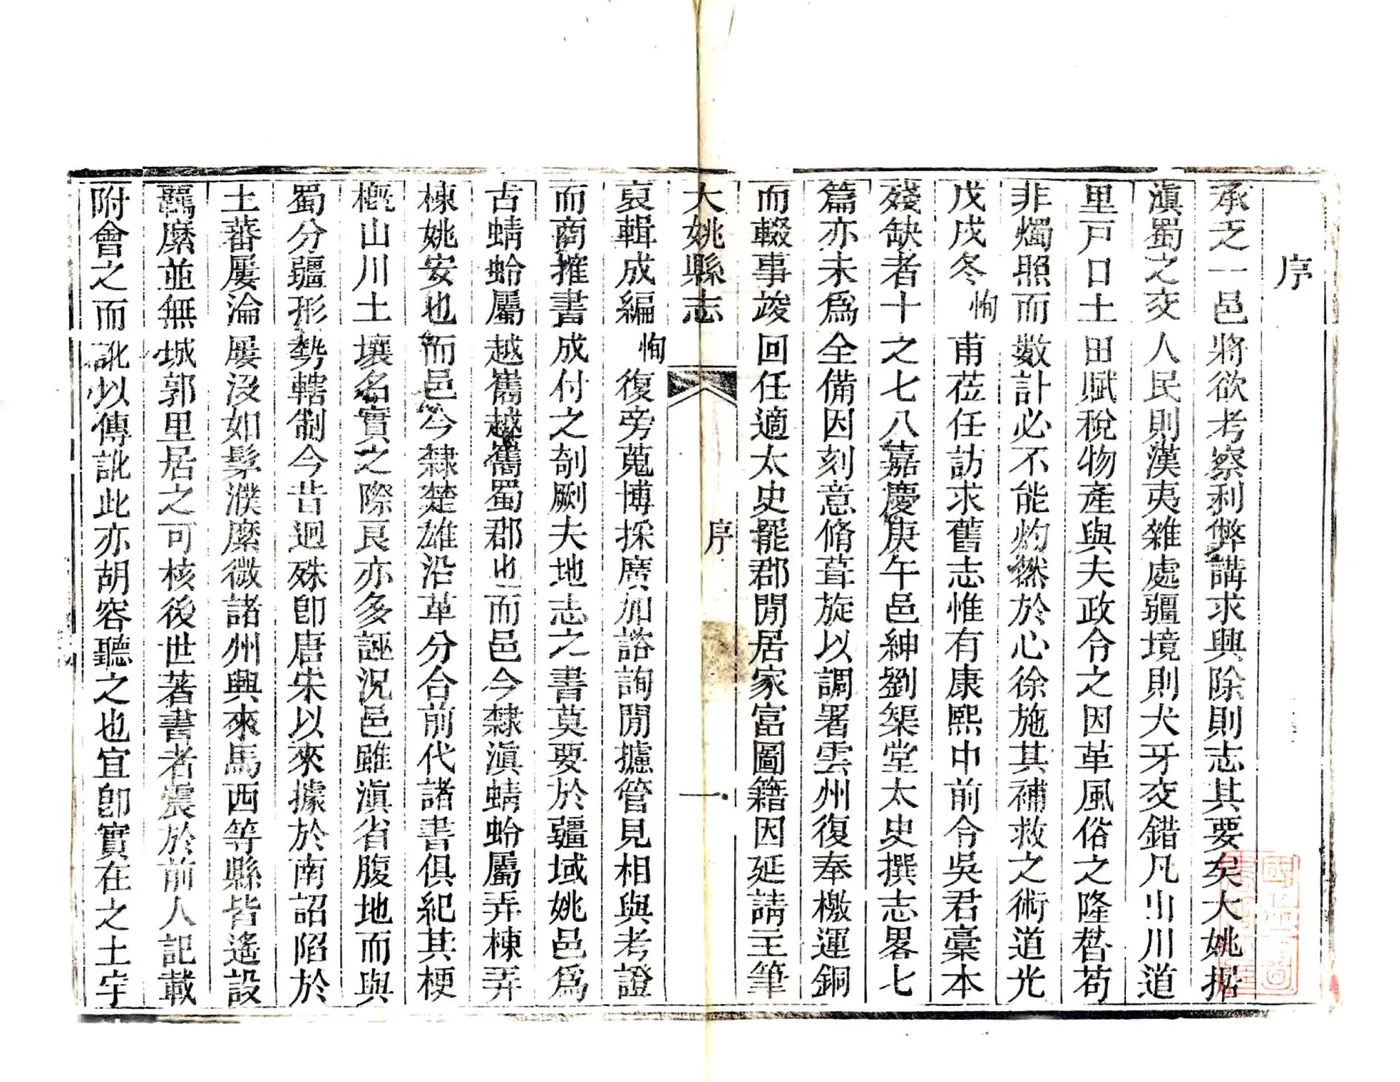 序
承乏一邑將欲考察利弊講求興除則志其要矣大姚据
滇蜀之交人民則漢夷雜處疆境則犬牙交錯凡山川道
里戸口土田賦稅物產與夫政令之因革風俗之隆替苟
非燭照而數計必不能灼然於心徐施其補救之術道光
戊戌冬恂甫莅任訪求舊志惟有康熙中前令吳君稾本
殘缺者十之七八嘉慶庚午邑紳劉榘堂太史撰志畧七
篇亦未爲全備因刻意脩葺旋以調署雲州復奉檄運銅
而輟事竣回任適太史罷郡閒居家富圖籍因延請主筆
大姚縣志
序
一
裒輯成編恂復旁蒐博採廣加諮詢閒攄管見相與考證
而商搉書成付之剞劂夫地志之書莫要於疆域姚邑爲
古蜻蛉屬越巂越巂蜀郡也而邑今隸滇蜻蛉屬弄棟弄
棟姚安也而邑今隸楚雄沿革分合前代諸書俱紀其梗
槪山川土壤名實之際良亦多誣況邑雖滇省腹地而與
蜀分疆形勢轄制今昔迥殊卽唐宋以來據於南詔陷於
土蕃屢淪屢沒如髳濮縻微諸州興來馬西等縣皆遙設
羈縻並無城郭里居之可核後世著書者震於前人記載
附會之而訛以傳訛此亦胡容聽之也宜卽實在之土宇